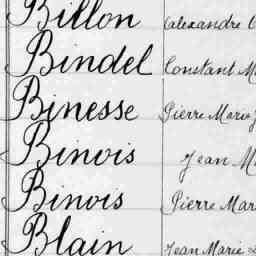 Billon Alexandre
Bindel Constant M
Binesse Pierre Marie J
Binois Jean M
Binois Pierre Mar
Blain Jean Marie